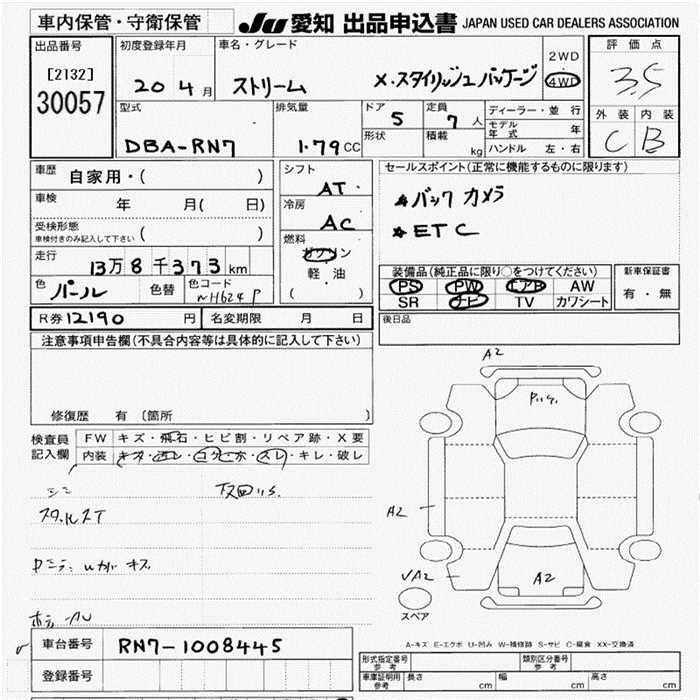 車内保管・守衛保管
JU 愛知 出品申込書 JAPAN USED CAR DEALERS ASSOCIATION
出品番号
[2132]
30057
初度登録年月
20 4月
車名・グレード
ストリーム X・スタイリッシュパッケージ
2WD
・
4WD
評価点
3.5
外装 内装
C B
型式
DBA-RN7
排気量
1.79CC
ドア 5
形状
定員 7人
積載 kg
ディーラー・並行
モデル年式 年
ハンドル 左・右
車歴 自家用・( )
車検 年 月( 日)
受検形態
車検付きのみ記入して下さい ( )
走行
13万8千373km
色 パール 色替 色コード NH624P
シフト
AT
冷房
AC
燃料
ガソリン
軽油
( )
セールスポイント(正常に機能するものに限ります)
★バックカメラ
★ETC
装備品(純正品に限り○をつけてください)
PS PW エアB AW
SR ナビ TV カワシート
新車保証書
有・無
R券 12190 円 名変期限 月 日
後日品
注意事項申告欄(不具合内容等は具体的に記入して下さい)
修復歴 有 〔箇所 〕
検査員
記入欄
FW キズ・飛石・ヒビ割・リペア跡・X要
内装 キズ・汚レ・コゲ・ホ・スレ・キレ・破レ
A2
A2
A2
VA2
スペア
A-キズ E-エクボ U-凹み W-補修跡 S-サビ C-腐食 XX-交換済
車台番号 RN7-1008445
登録番号
形式指定番号
参考
類別区分番号
参考
車庫証明用
参考
長さ cm 幅 cm 高さ cm